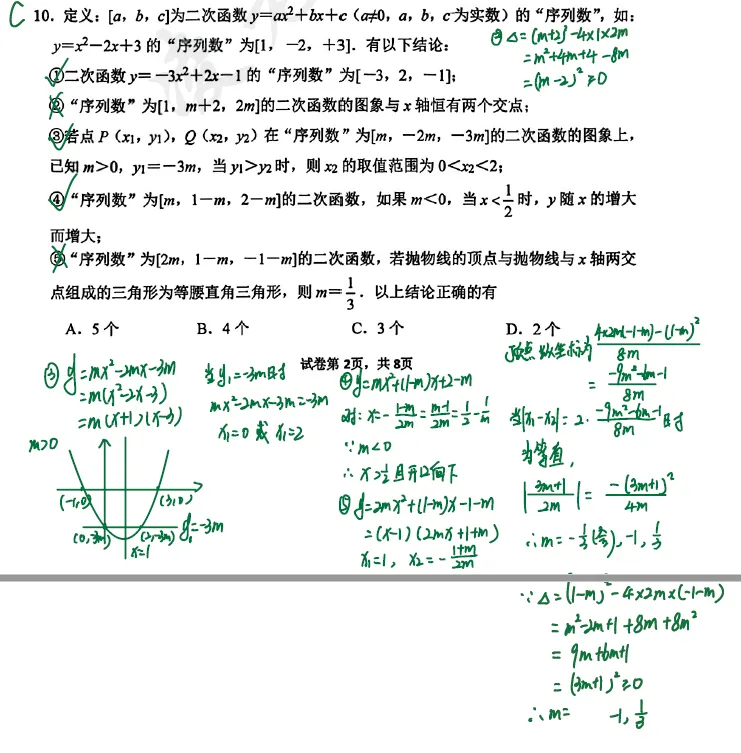 C 10. 定义：[a，b，c]为二次函数 y=ax²+bx+c（a≠0，a，b，c 为实数）的“序列数”，如：
y=x²−2x+3 的“序列数”为[1，−2，+3]．有以下结论：
②Δ=(m+2)²-4×1×2m
=m²+4m+4-8m
=(m-2)²≥0
①二次函数 y=−3x²+2x−1 的“序列数”为[−3，2，−1]；
②“序列数”为[1，m+2，2m]的二次函数的图象与 x 轴恒有两个交点；
③若点 P（x₁，y₁），Q（x₂，y₂）在“序列数”为[m，−2m，−3m]的二次函数的图象上，
已知 m>0，y₁=−3m，当 y₁>y₂ 时，则 x₂ 的取值范围为 0<x₂<2；
④“序列数”为[m，1−m，2−m]的二次函数，如果 m<0，当 x<1/2 时，y 随 x 的增大
而增大；
⑤“序列数”为[2m，1−m，−1−m]的二次函数，若抛物线的顶点与抛物线与 x 轴两交
点组成的三角形为等腰直角三角形，则 m=1/3．以上结论正确的有
A．5 个 B．4 个 C．3 个 D．2 个
试卷第 2页，共 8页
③ y=mx²-2mx-3m
=m(x²-2x-3)
=m(x+1)(x-3)
m>0
(-1,0) (3,0)
(0,-3m) (2,-3m) y₁=-3m
x=1
当y₁=-3m时
mx²-2mx-3m=-3m
x₁=0 或 x₁=2
④y=mx²+(1-m)x+2-m
对: x=-(1-m)/2m=(m-1)/2m=1/2-1/2m
∵m<0
∴x>1/2且开口向下
⑤y=2mx²+(1-m)x-1-m
=(x-1)(2mx+1+m)
x₁=1，x₂=-(1+m)/2m
顶点纵坐标为 (4×2m(-1-m)-(1-m)²)/8m
=(-9m²-6m-1)/8m
当|x₁-x₂|=2·(-9m²-6m-1)/8m时
为等直，
|(3m+1)/2m|=-(3m+1)²/4m
∴m=-1/3(舍),-1,1/3
∵Δ=(1-m)²-4×2m×(-1-m)
=m²-2m+1+8m+8m²
=9m+6m+1
=(3m+1)²≥0
∴m= -1,1/3